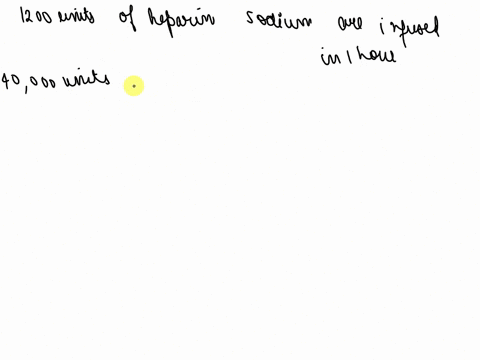 1200 units of heparin sodium are infused
in 1 hour
40,000 units